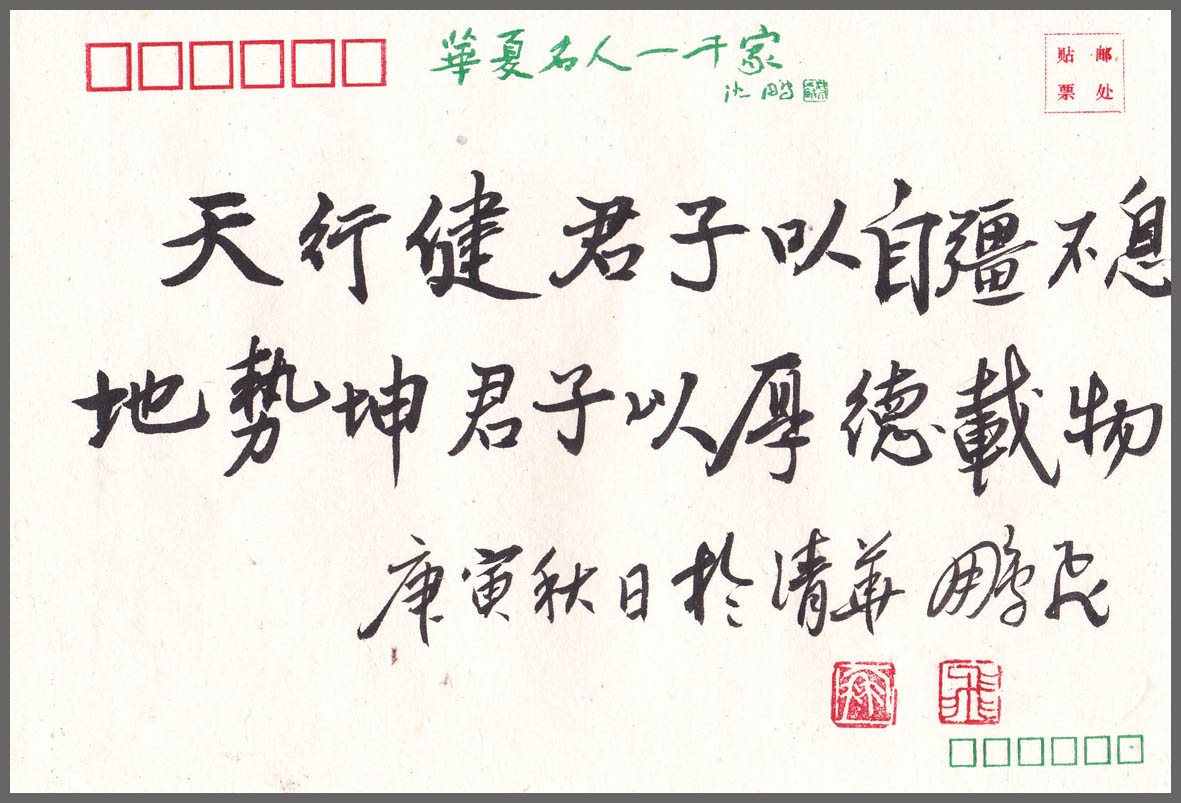 華夏名人一千家
沈鵬
贴邮
票处
天行健君子以自彊不息
地勢坤君子以厚德載物
庚寅秋日於清華 鹏飞